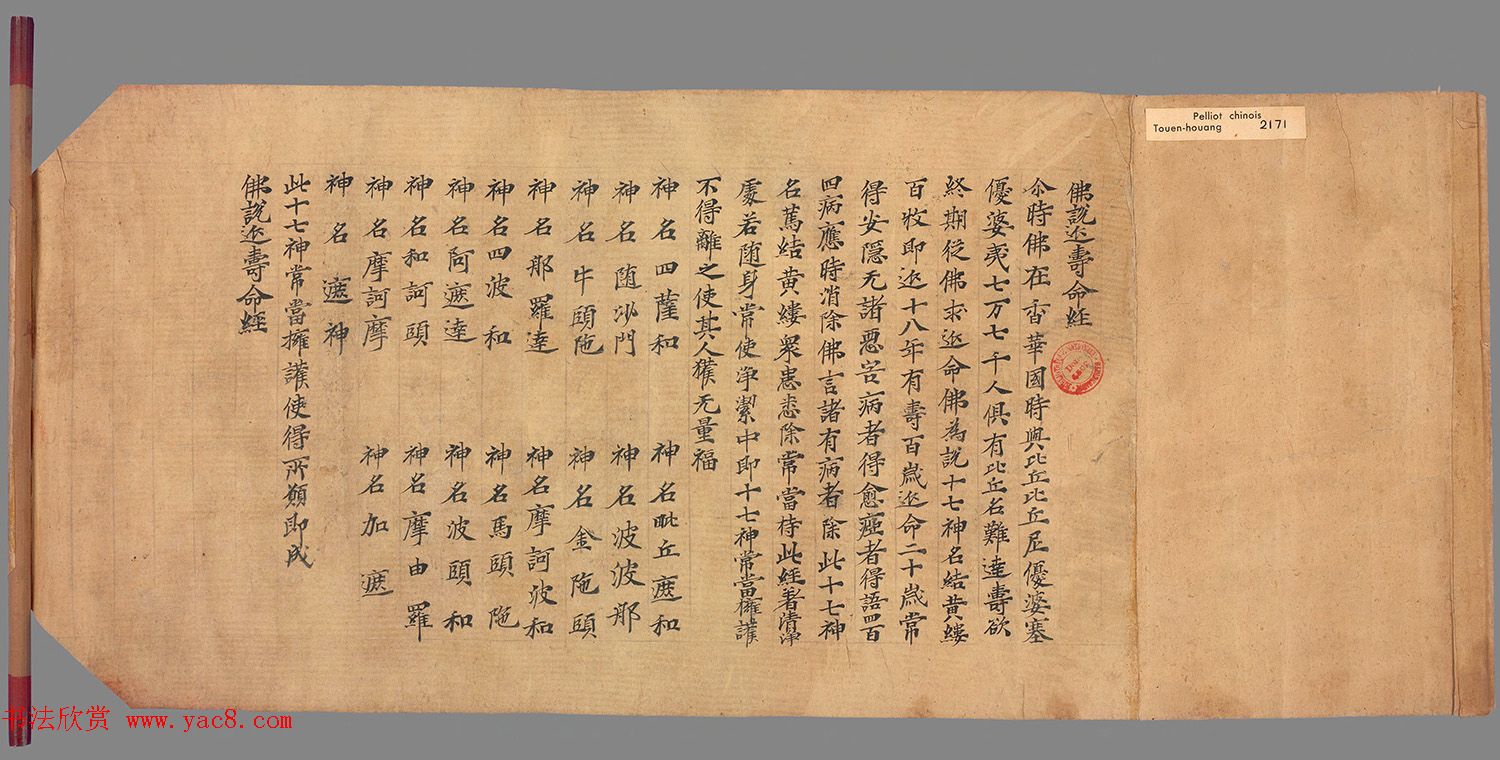 佛説延壽命經
尒時佛在香華國時與比丘比丘尼優婆塞
優婆夷七万七千人俱有比丘名難達壽欲
終期從佛求延命佛為説十七神名結黄縷
百牧即延十八年有壽百歳延命二十歳常
得安隱无諸惡害病者得愈瘂者得語四百
四病應時消除佛言諸有病者除此十七神
名萬結黄縷衆患悉除常當持此經著清净
處若随身常使净潔中即十七神常當擁護
不得離之使其人獲无量福
神名四薩和 神名毗丘遮和
神名随沙門 神名波波那
神名牛頭陁 神名金陁頭
神名那羅達 神名摩訶波和
神名四波和 神名馬頭陁
神名阿遮達 神名波頭和
神名和訶頭 神名摩由羅
神名摩訶摩 神名加遮
神名遮神
此十七神常當擁護使得所願即成
佛説延壽命經
Pelliot chinois
Touen-houang 2171
书法欣赏 www.yac8.com